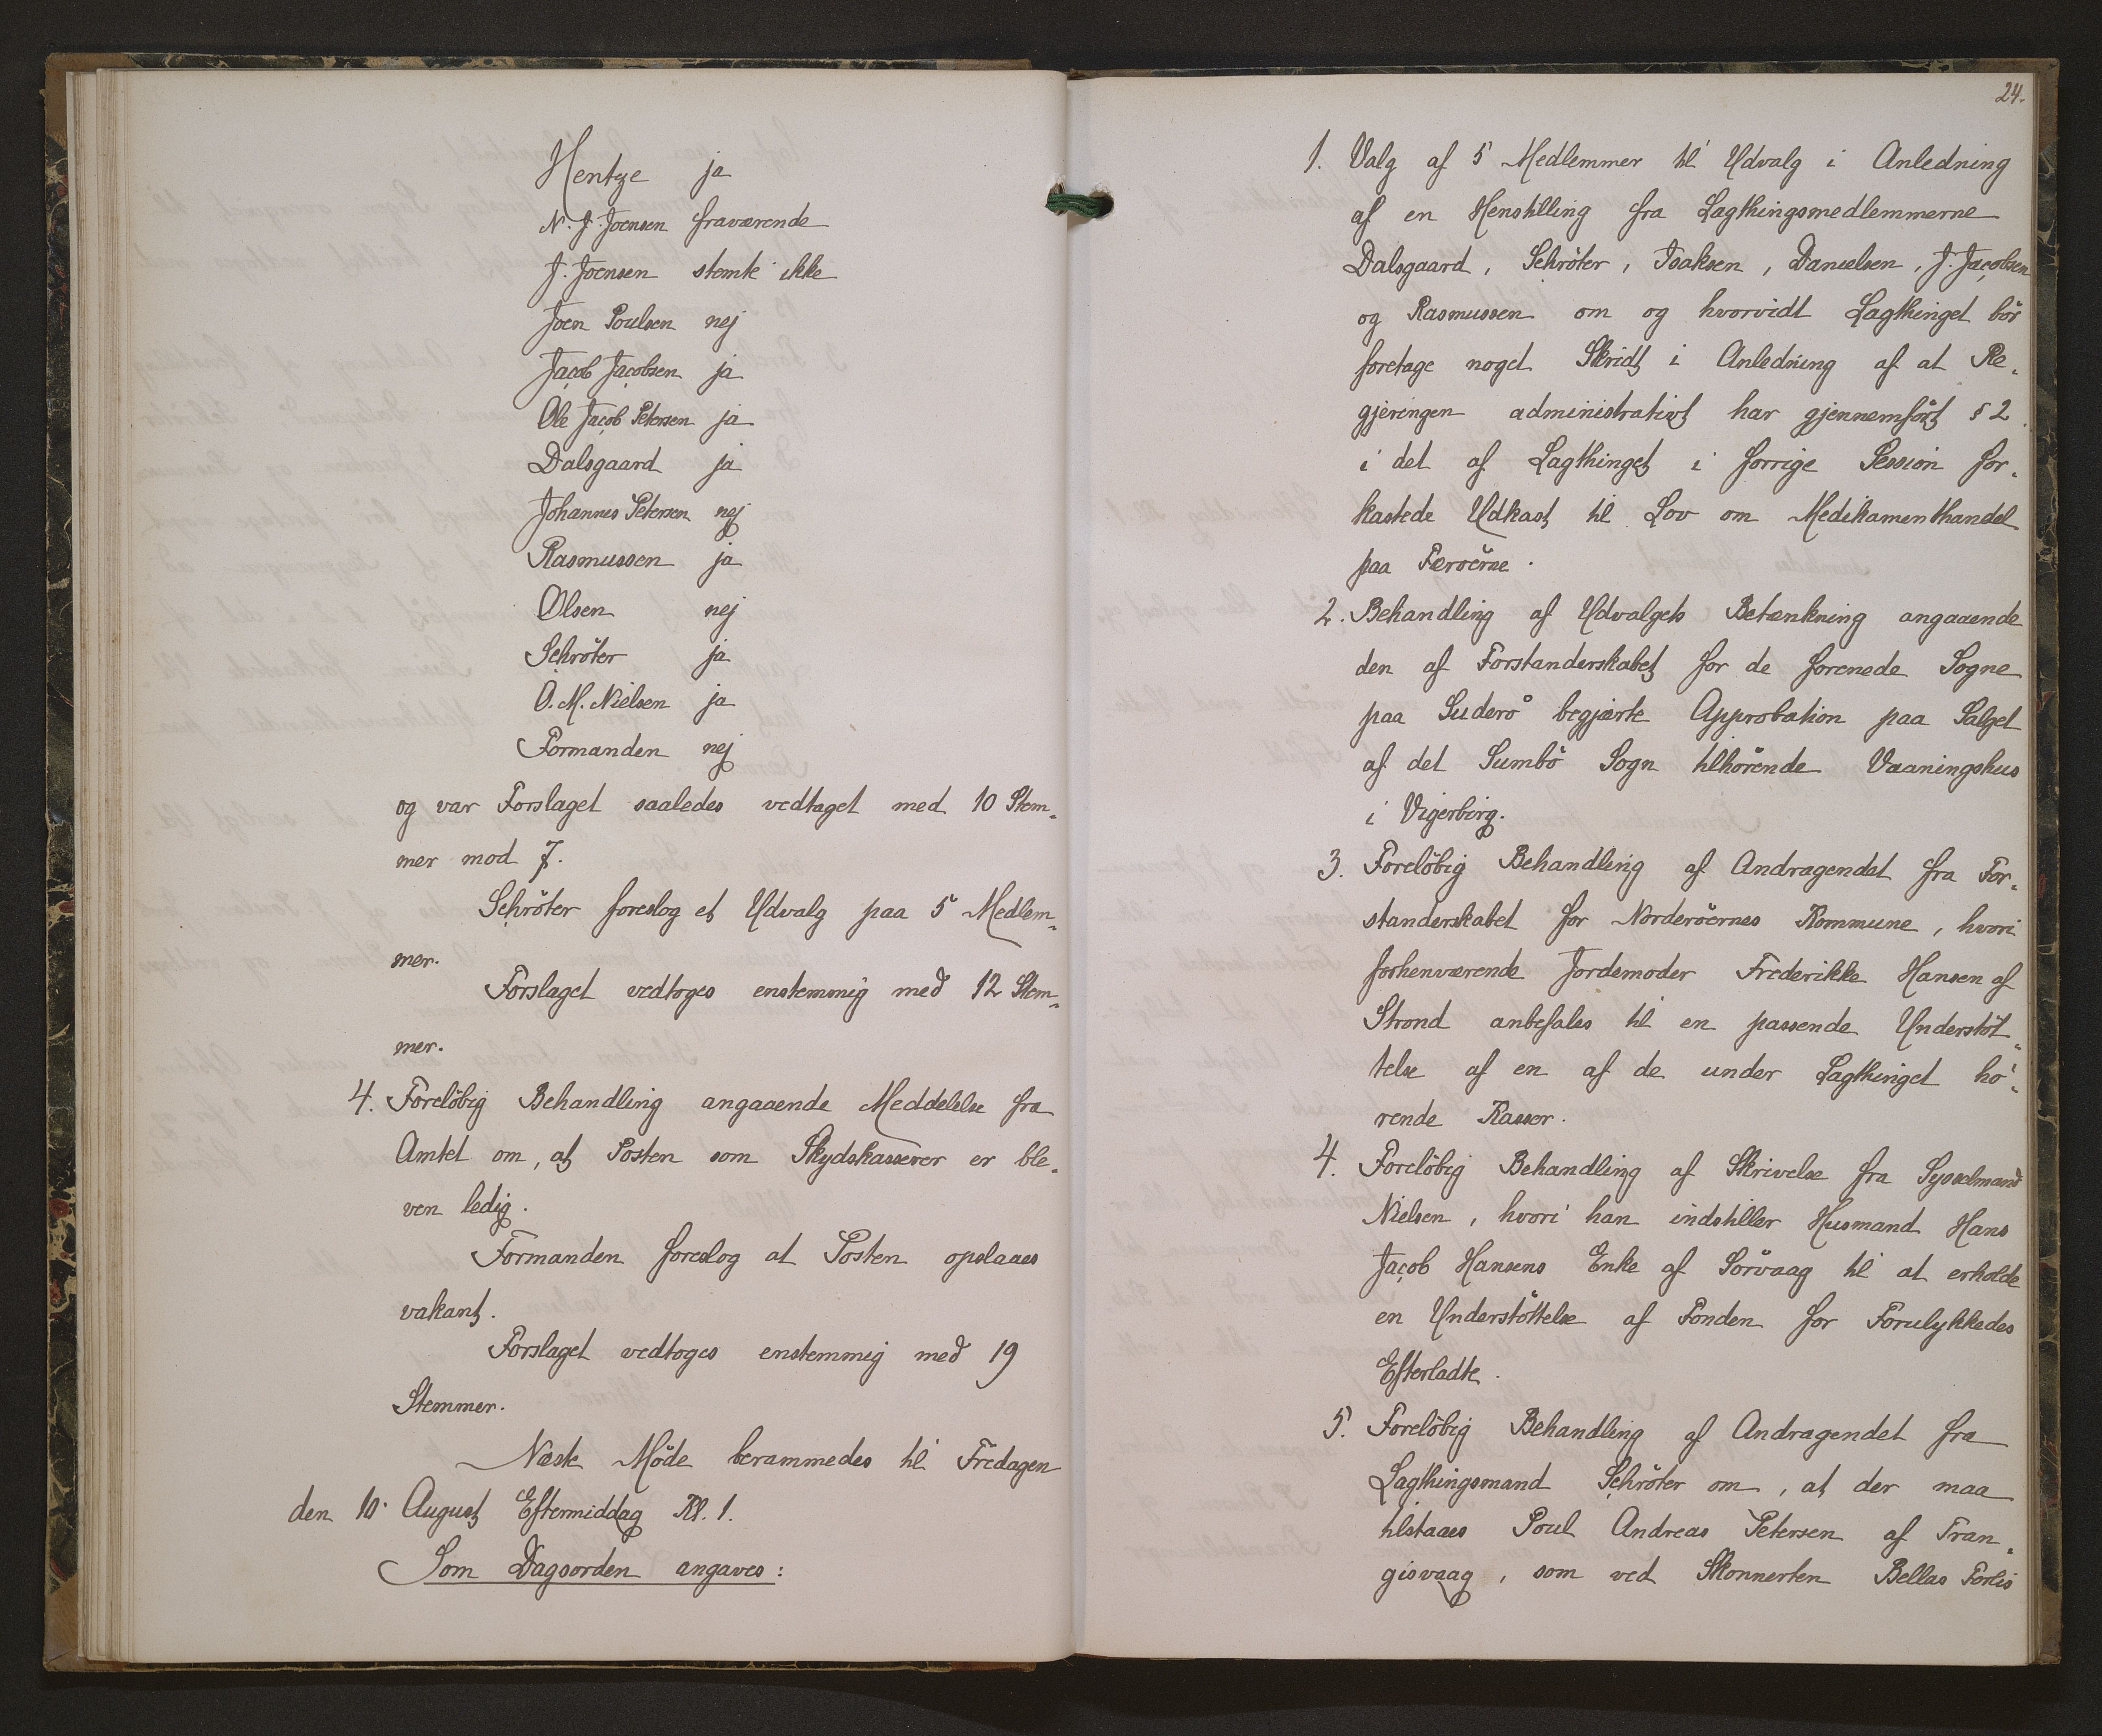 Hentze ja
N. J. Joensen fraværende
J. Joensen stemte ikke
Joen Poulsen nej
Jacob Jacobsen ja
Ole Jacob Petersen ja
Dalsgaard ja
Johannes Petersen nej
Rasmussen ja
Olsen nej
Schröter ja
O. M. Nielsen ja
Formanden nej
og var Forslaget saaledes vedtaget med 10 Stem-
mer mod 7.
Schröter foreslog et Udvalg paa 5 Medlem-
mer.
Forslaget vedtoges enstemmig med 12 Stem-
mer.
4. Foreløbig Behandling angaaende Meddelelse fra
Amtet om, at Posten som Skydskasserer er ble-
ven ledig.
Formanden foreslog at Posten opslaaes
vakant.
Forslaget vedtoges enstemmig med 19
Stemmer.
Næste Møde berammedes til Fredagen
den 10. August Eftermiddag Kl. 1.
Som Dagsorden angaves:
24.
1. Valg af 5 Medlemmer til Udvalg i Anledning
af en Henstilling fra Lagthingsmedlemmerne
Dalsgaard, Schröter, Isaksen, Danielsen, J. Jacobsen
og Rasmussen om og hvorvidt Lagthinget bör
foretage noget Skridt i Anledning af at Re-
gjeringen administrativt har gjennemfört § 2
i det af Lagthinget i forrige Session for-
kastede Udkast til Lov om Medikamenthandel
paa Færöerne.
2. Behandling af Udvalgets Betænkning angaaende
den af Forstanderskabet for de forenede Sogne
paa Suderö begjærte Approbation paa Salget
af det Sumbö Sogn tilhörende Vaaningshus
i Vigerbirg.
3. Forelöbig Behandling af Andragendet fra For-
standerskabet for Norderöernes Kommune, hvori
forhenværende Jordemoder Frederikke Hansen af
Strond anbefales til en passende Understöt-
telse af en af de under Lagthinget hö-
rende Kasser.
4. Forelöbig Behandling af Skrivelse fra Sysselmand
Nielsen, hvori han indstiller Husmand Hans
Jacob Hansens Enke af Sörvaag til at erholde
en Understöttelse af Fonden for Forulykkedes
Efterladte.
5. Forelöbig Behandling af Andragendet fra
Lagthingsmand Schröter om, at der maa
tilstaaes Poul Andreas Petersen af Tran-
gisvaag, som ved Skonnerten Bellas Forlis